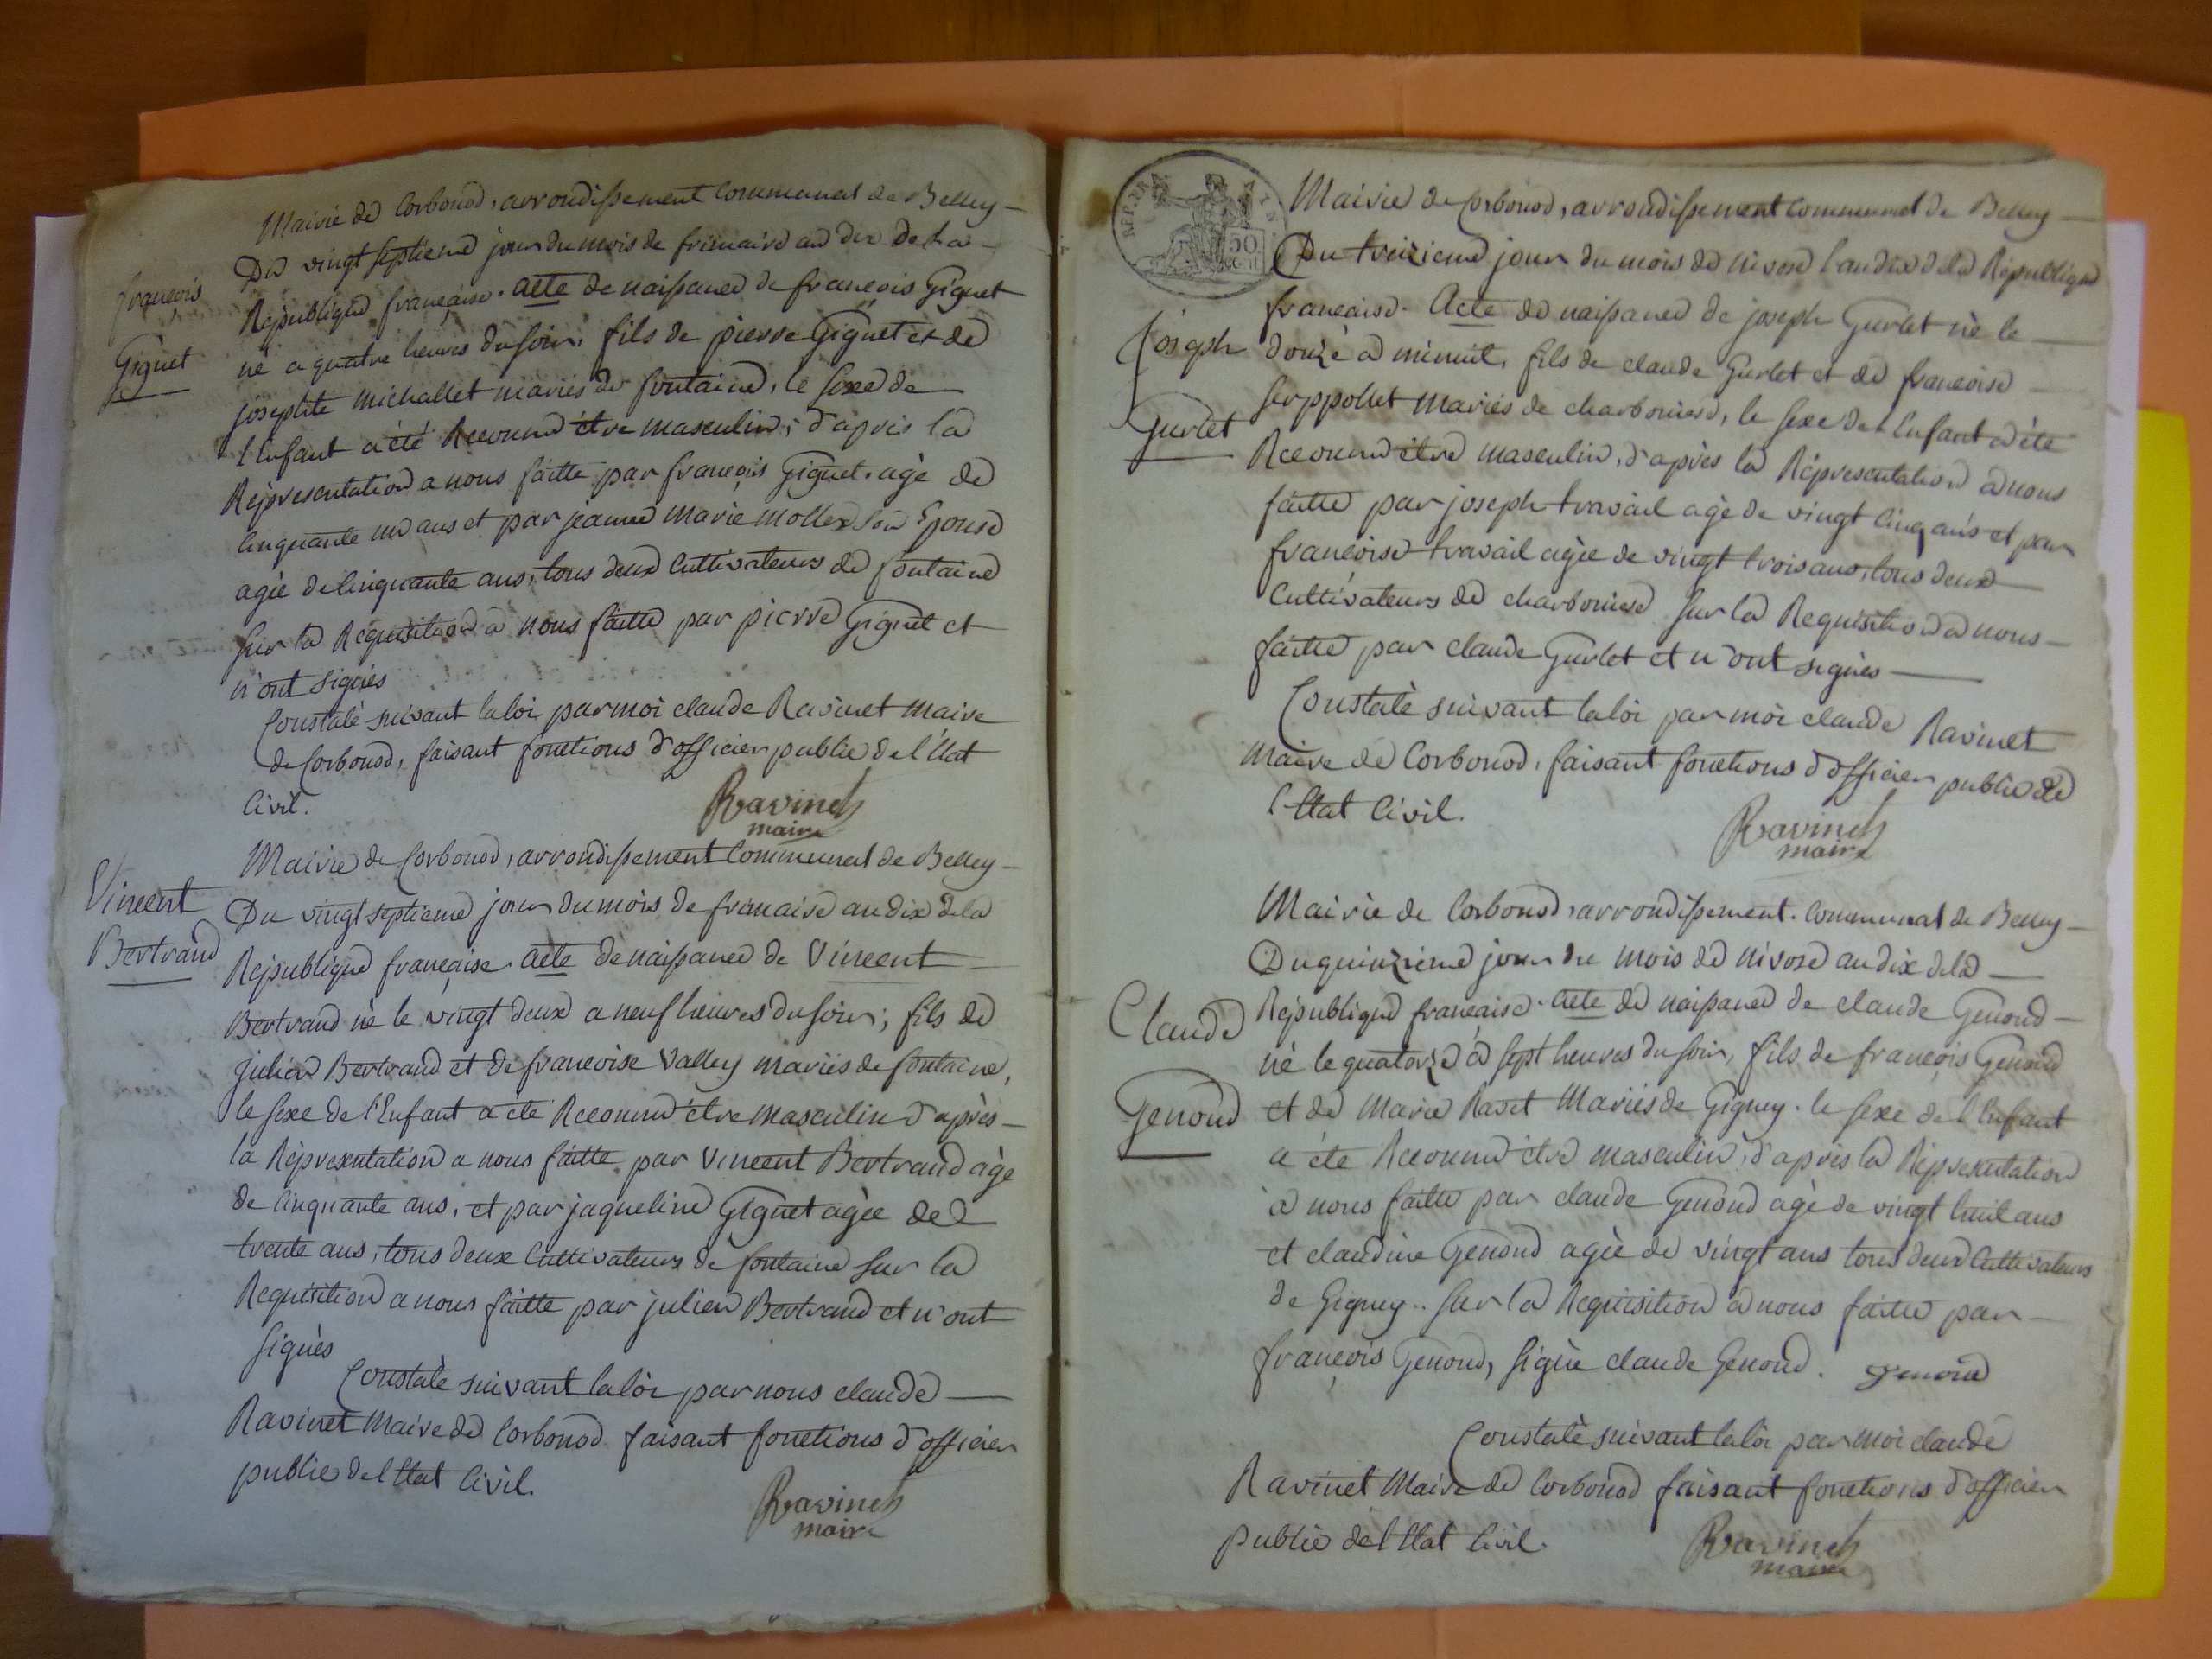 Mairie de Corbonod, arrondissement Communal de Belley
Du vingt septieme jour du mois de frimaire an dix de la
françois
Republique française. acte de naissance de françois Giguet
Giguet
né a quatre heures du soir, fils de pierre Giguet et de
josephte michallet mariés de fontaine, le sexe de
l'Enfant a été Reconnu être masculin, d'après la
Répresentation a nous faitte par françois Giguet. agé de
Cinquante un ans et par jeanne marie mollex son Epouse
agée de Cinquante ans, tous deux Cultivateurs de fontaine
sur la Requisition a nous faitte par pierre Giguet et
n'ont signés
Constaté suivant la loi par moi claude Ravinet maire
de Corbonod, faisant fonctions d'officier public de l'Etat
Civil.
Ravinet
maire
Mairie de Corbonod, arrondissement Communal de Belley
Vincent
Du vingt septieme jour du mois de frimaire an dix de la
Bertrand
Republique française. acte de naissance de Vincent
Bertrand né le vingt deux a neuf heures du soir, fils de
julien Bertrand et de francoise Valley mariés de fontaine,
le sexe de l'Enfant a été Reconnu être masculin d'après
la Répresentation a nous faitte par Vincent Bertrand agé
de Cinquante ans, et par jaqueline Giguet agée de
trente ans, tous deux Cultivateurs de fontaine sur la
Requisition a nous faitte par julien Bertrand et n'ont
signés
Constaté suivant la loi par nous claude
Ravinet Maire de Corbonod faisant fonctions d'officier
public de l'Etat Civil.
Ravinet
maire
REP. FRA
50
Mairie de Corbonod, arrondissement Communal de Belley
Du treizieme jour du mois de nivose l'an dix de la Republique
francaise. Acte de naissance de joseph Gurlet né le
Joseph
douze a minuit, fils de claude Gurlet et de francoise
Gurlet
serppollet mariés de charboniere, le sexe de l'Enfant a été
Reconnu être masculin, d'après la Répresentation a nous
faitte par joseph travail agé de vingt Cinq ans et par
francoise travail agée de vingt trois ans, tous deux
Cultivateurs de charboniere sur la Requisition a nous
faitte par claude Gurlet et n'ont signés
Constaté suivant la loi par moi claude Ravinet
Maire de Corbonod, faisant fonctions d'officier public de
l'Etat Civil.
Ravinet
maire
Mairie de Corbonod, arrondissement. Communal de Belley
Du quinzieme jour du mois de nivose an dix de la
Claude
Republique francaise. acte de naissance de claude Genoud
né le quatorze a sept heures du soir, fils de françois Genoud
Genoud
et de Marie Ravet Mariés de Gigney. le sexe de l'Enfant
a été Reconnu être masculin, d'après la Répresentation
a nous faitte par claude Genoud agé de vingt huit ans
et claudine Genoud agée de vingt ans tous deux Cultivateurs
de Gigney.. sur la Requisition a nous faitte par
françois Genoud, signé claude Genoud. genoud
Constaté suivant la loi par moi claude
Ravinet Maire de Corbonod faisant fonctions d'officier
public de l'Etat Civil.
Ravinet
maire